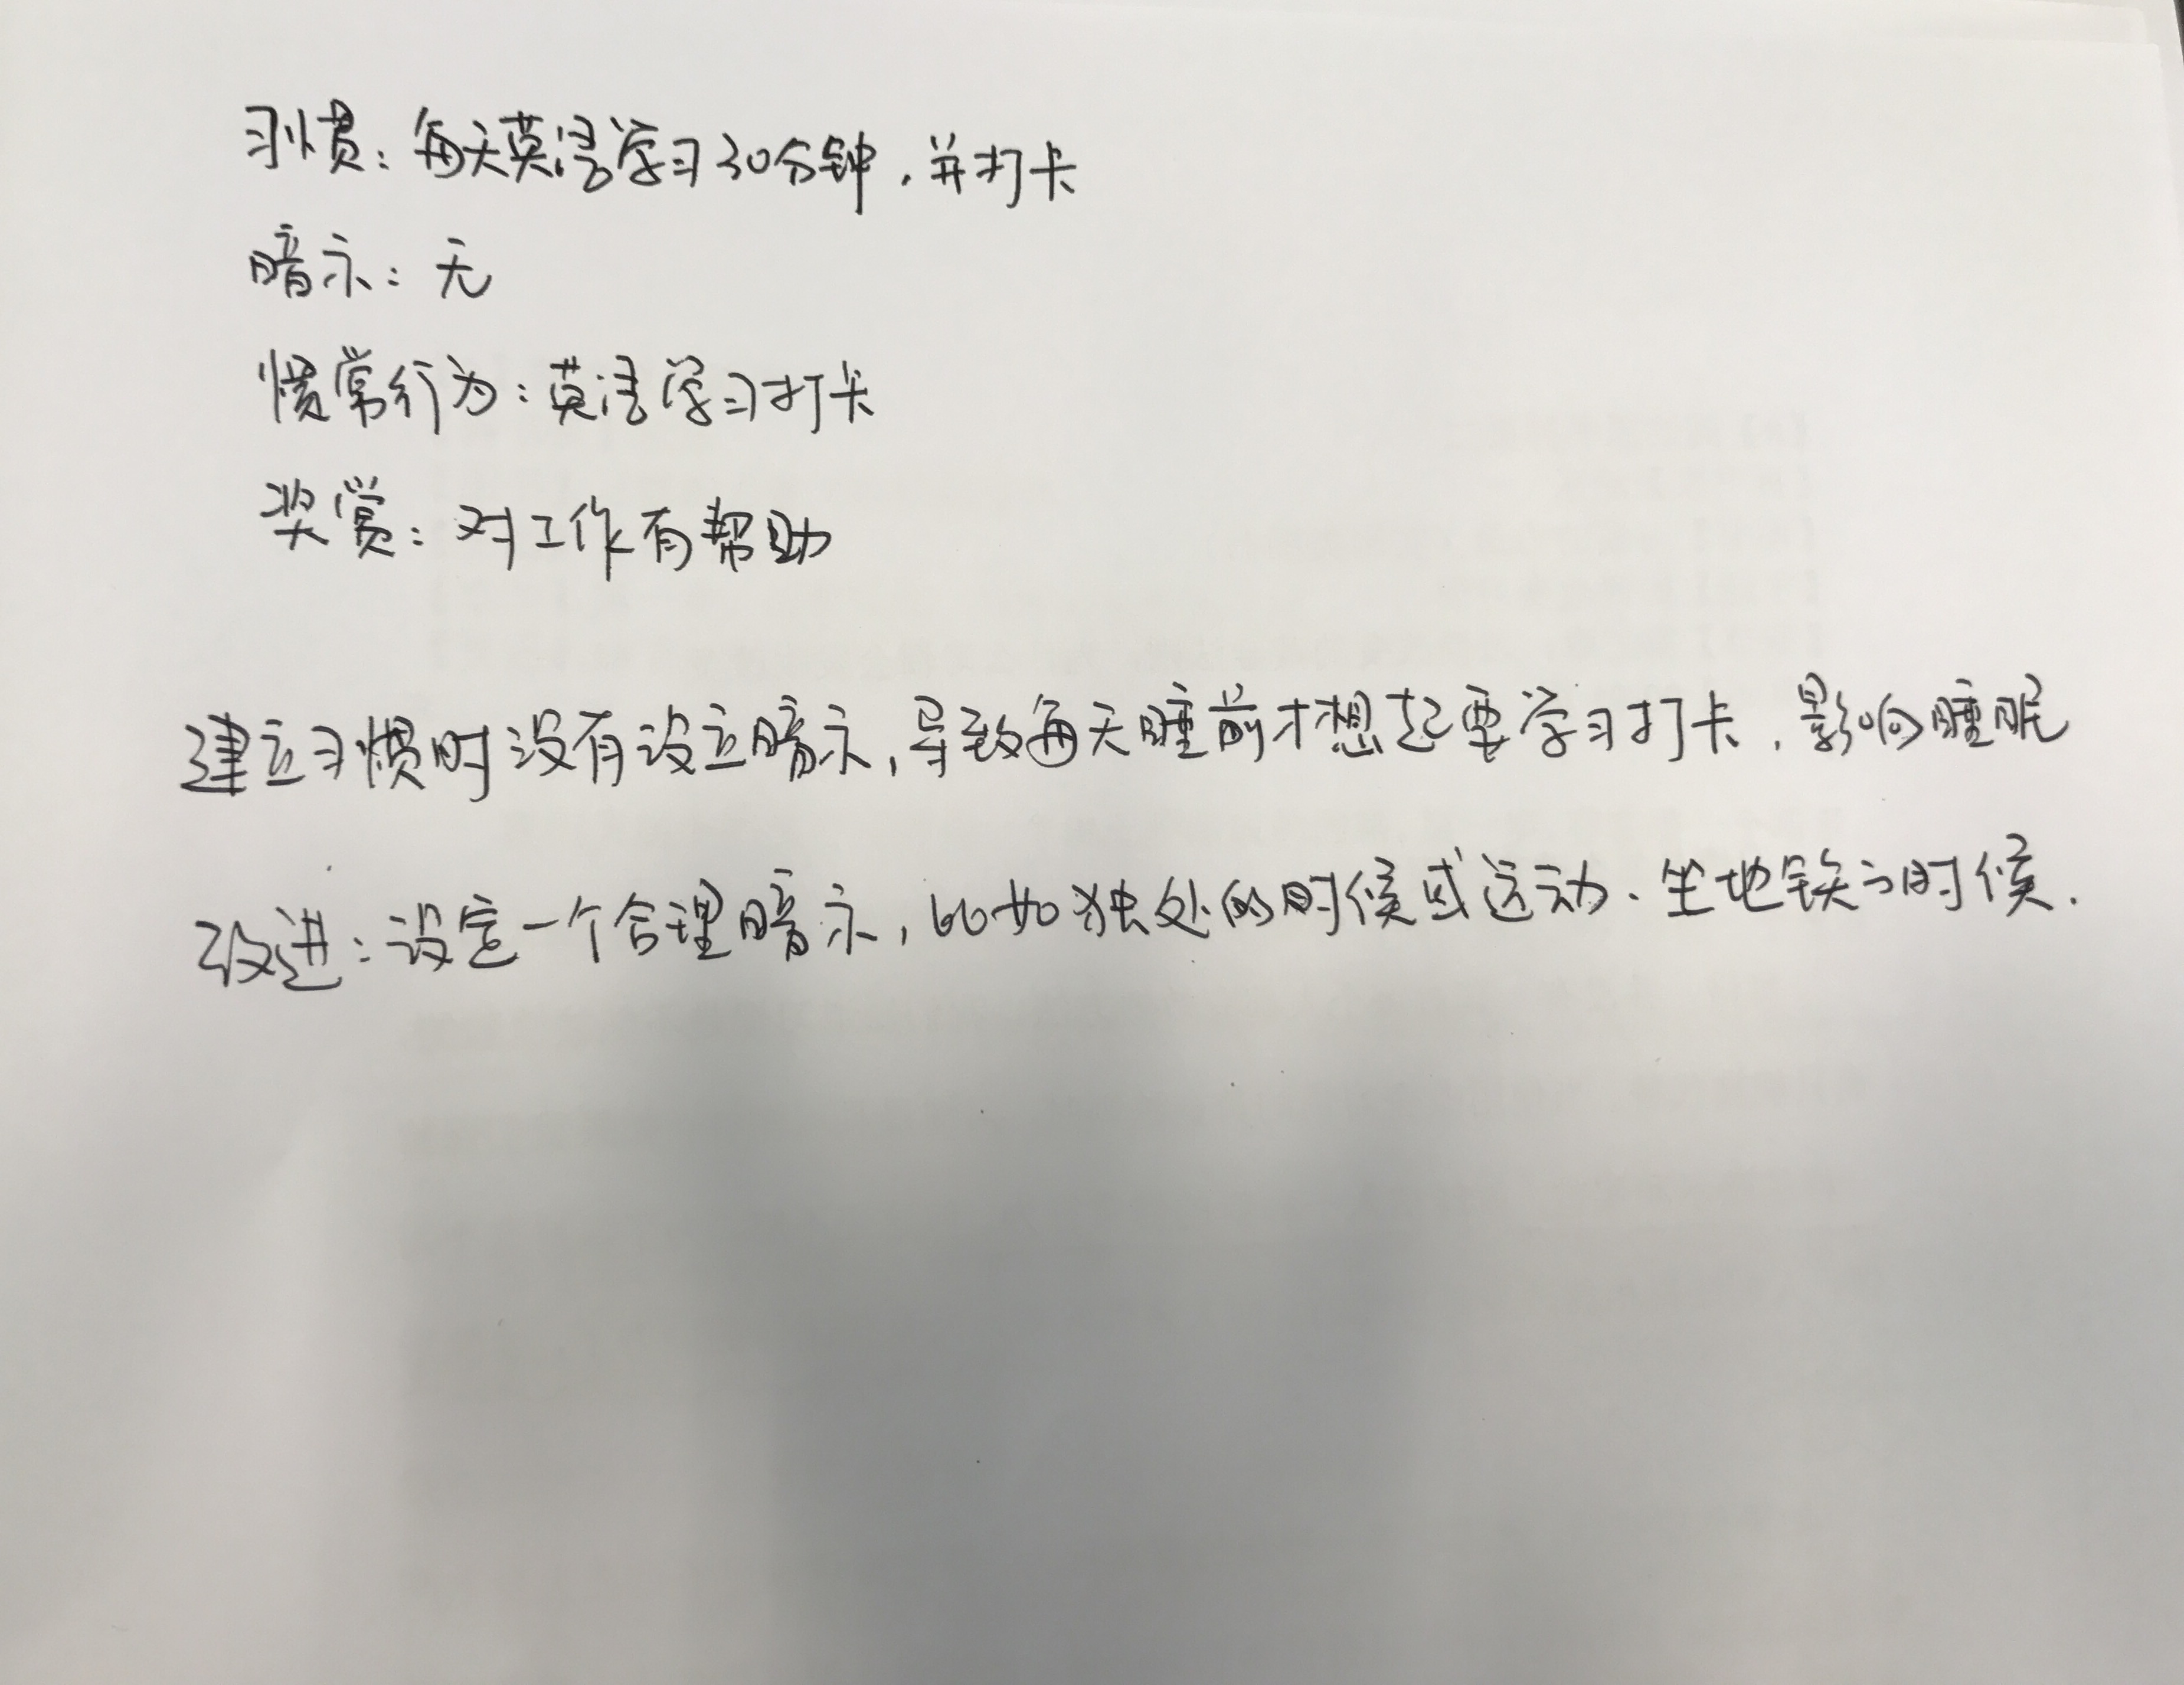 习惯：每天英语学习30分钟，并打卡
暗示：无
惯常行为：英语学习打卡
奖赏：对工作有帮助
建立习惯时没有设立暗示，导致每天睡前才想起要学习打卡，影响睡眠
改进：设定一个合理暗示，比如独处的时候或运动、坐地铁的时候.